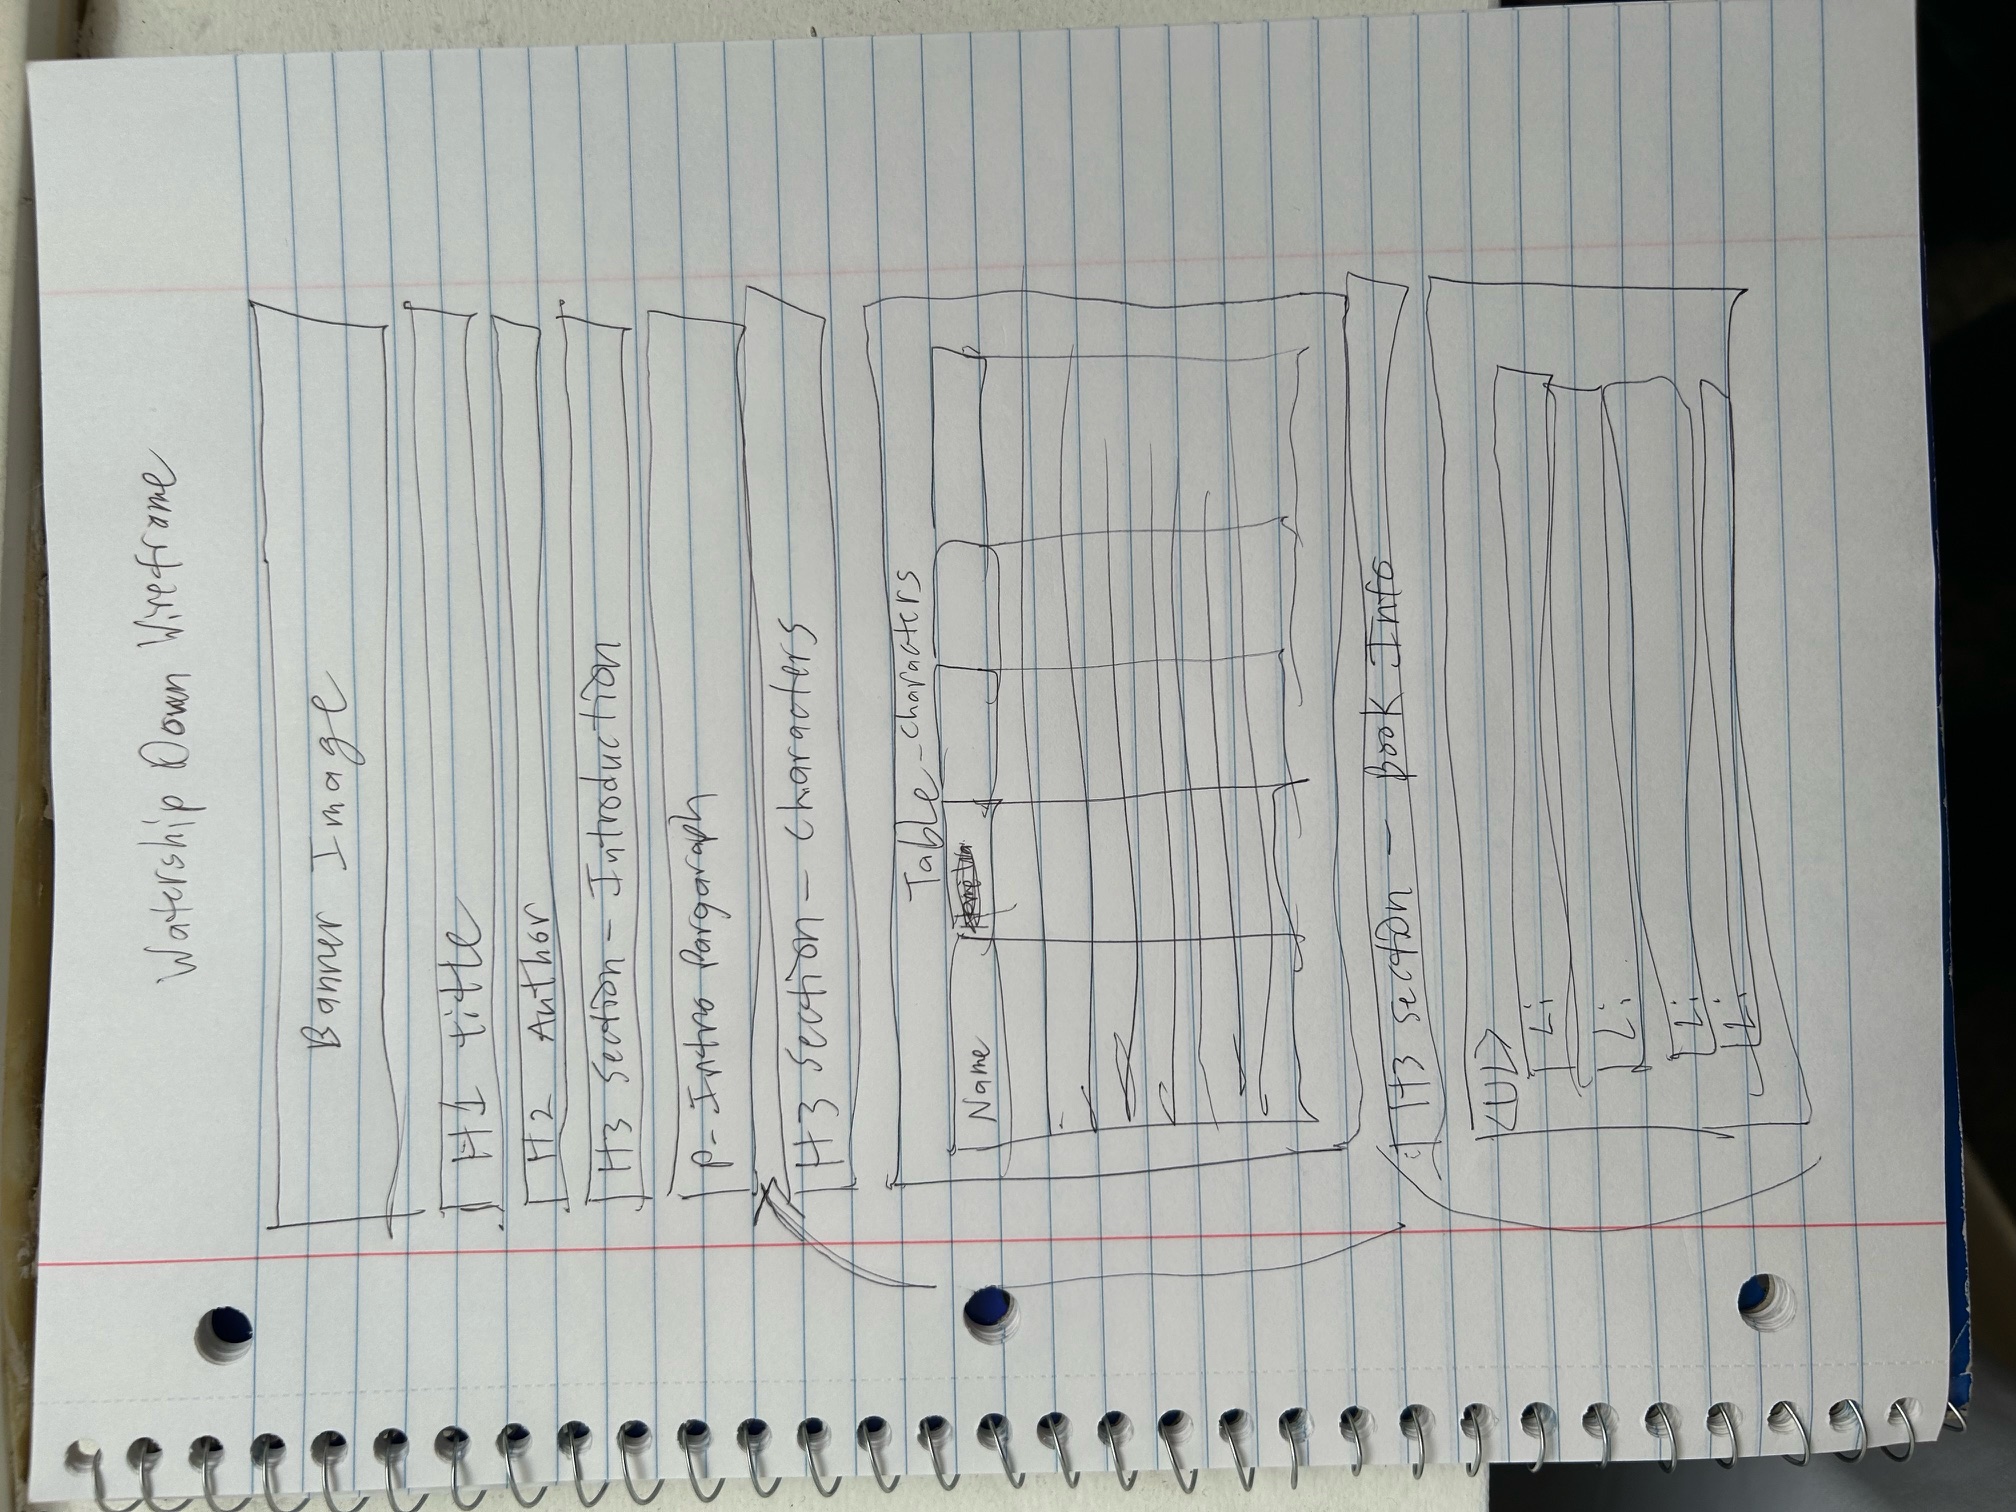 Watership Down Wireframe
Banner Image
H1 title
H2 Author
H3 Section - Introduction
P- Intro Pargaraph
H3 Section - Characters
Table - Characters
Name
H3 section - Book Info
<UL>
Li
Li
Li
Li